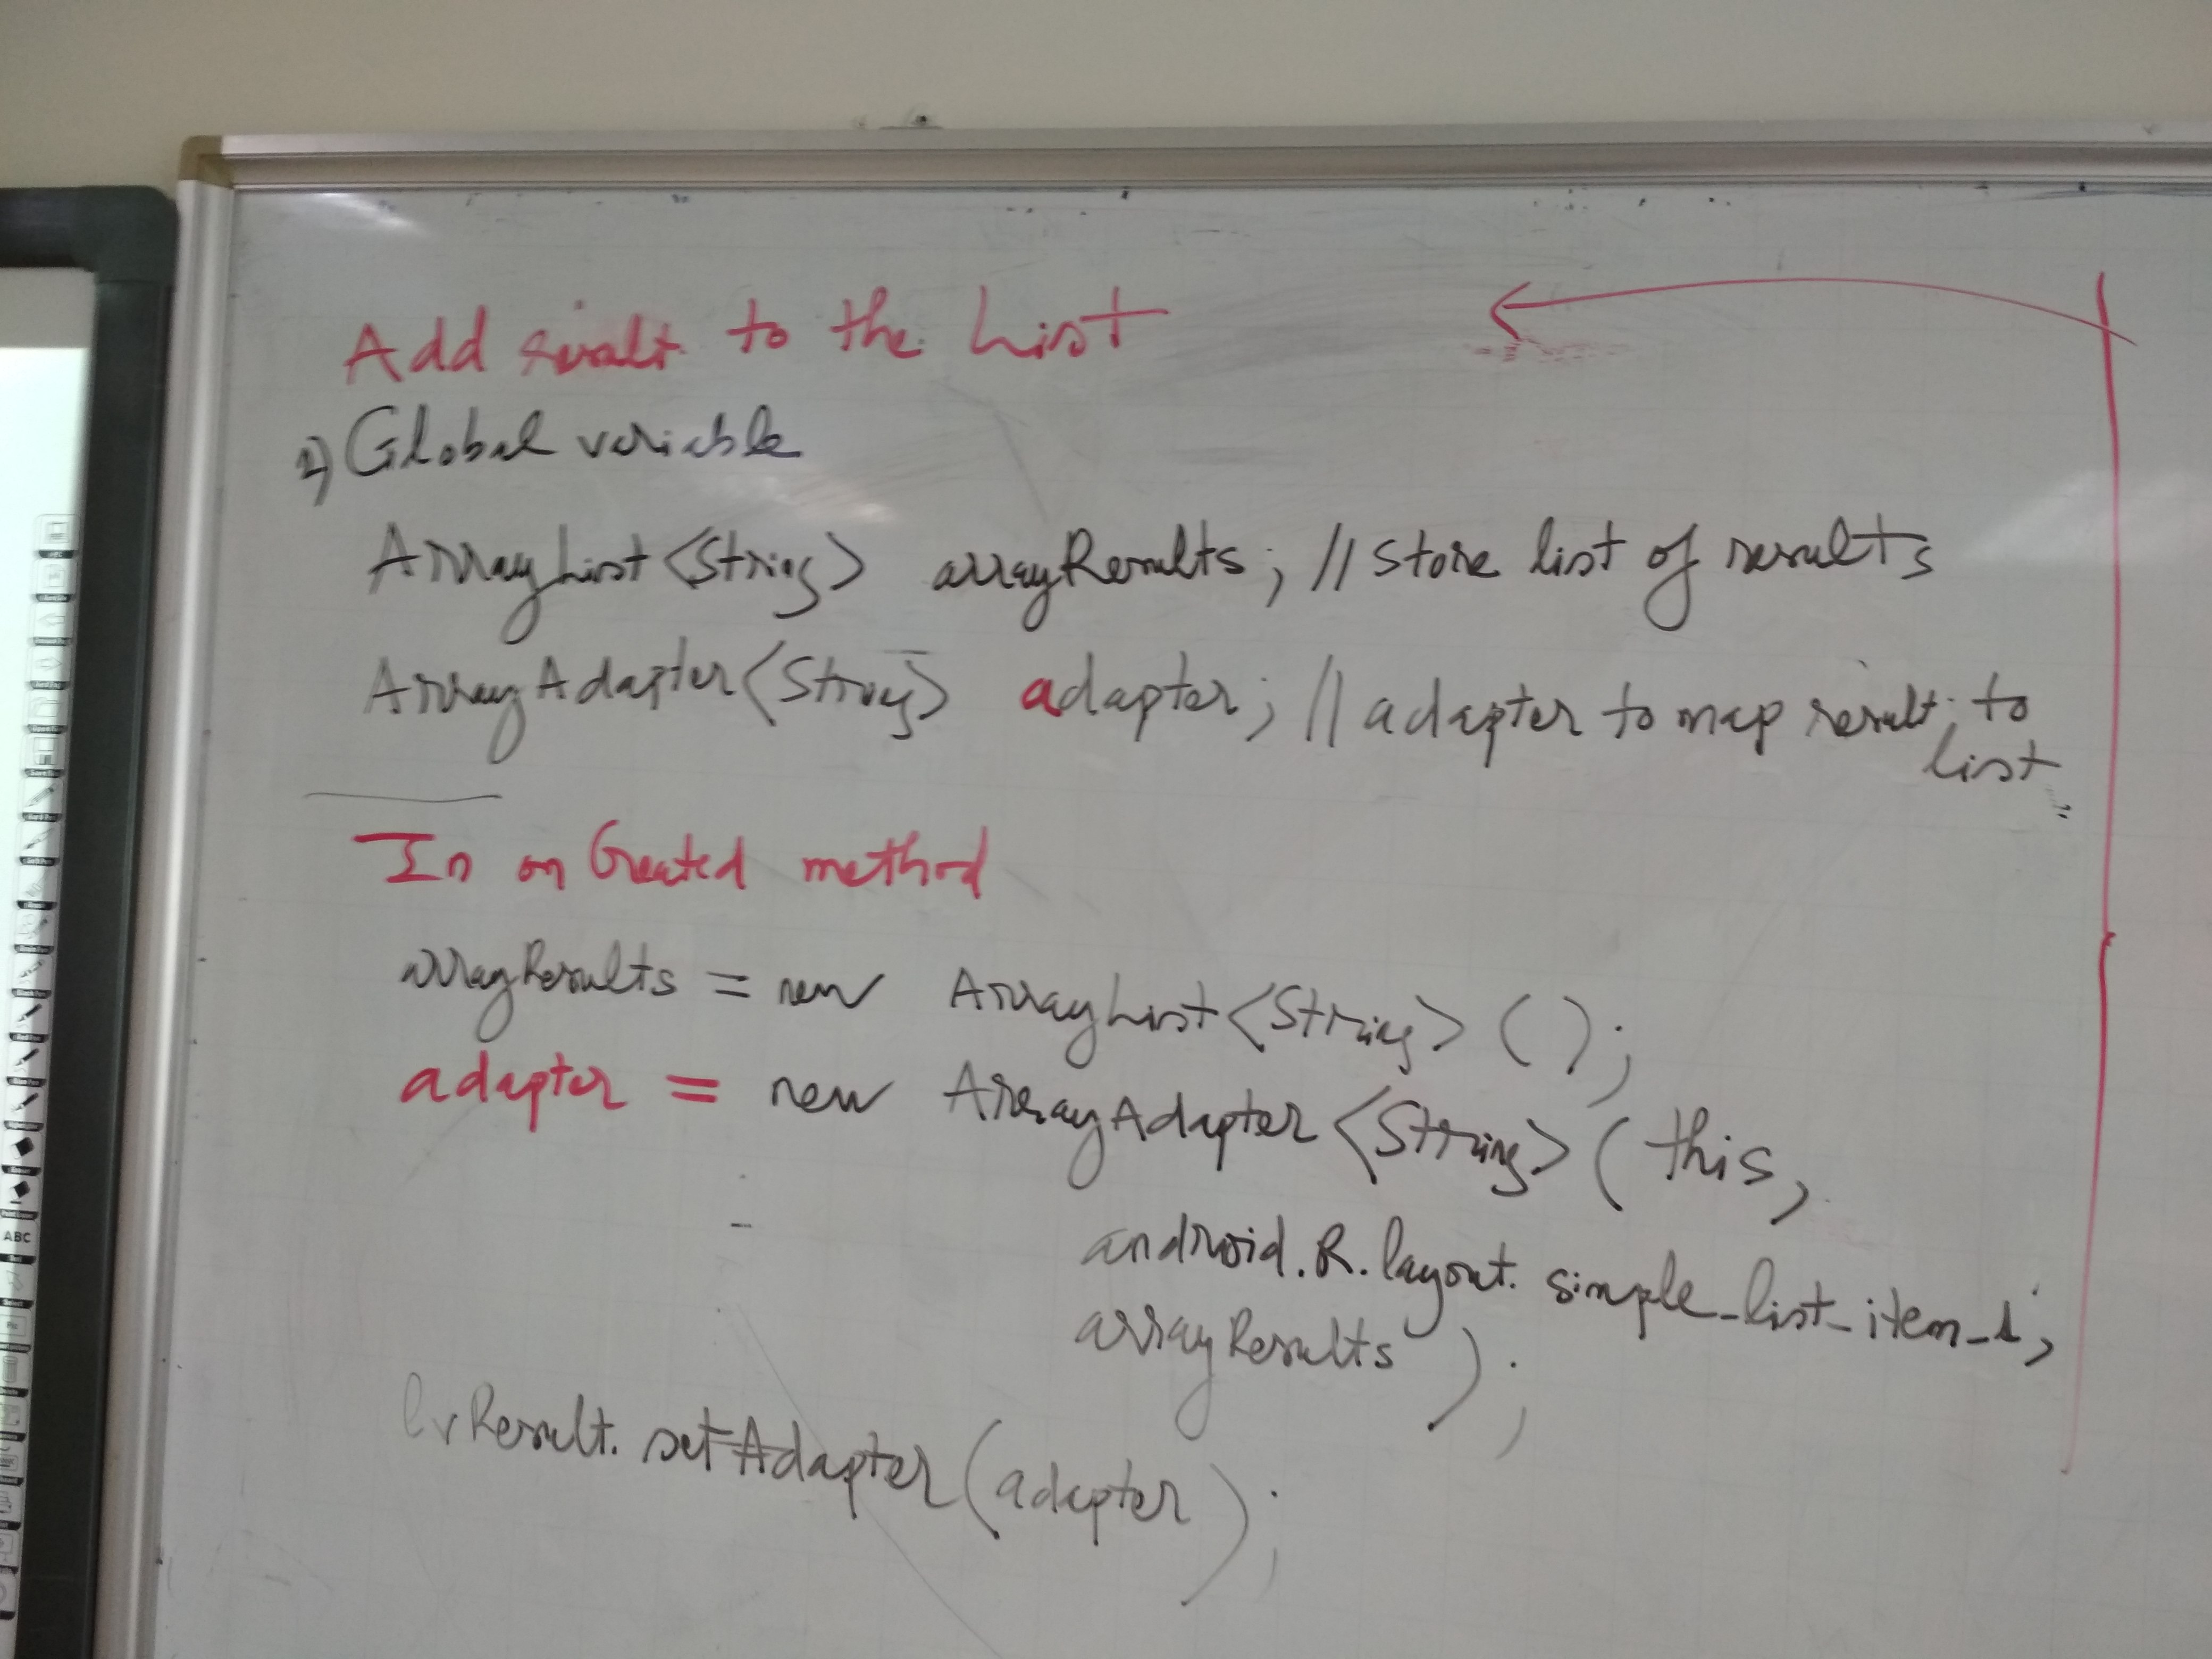 Add result to the List
1) Global variable
ArrayList<String> arrayResults; // store list of results
ArrayAdapter<String> adapter; // adapter to map result to
list
In onCreated method
arrayResults = new ArrayList<String>();
adapter = new ArrayAdapter<String>(this,
android.R.layout.simple_list_item_1,
arrayResults);
lvResult.setAdapter(adapter);
ABC